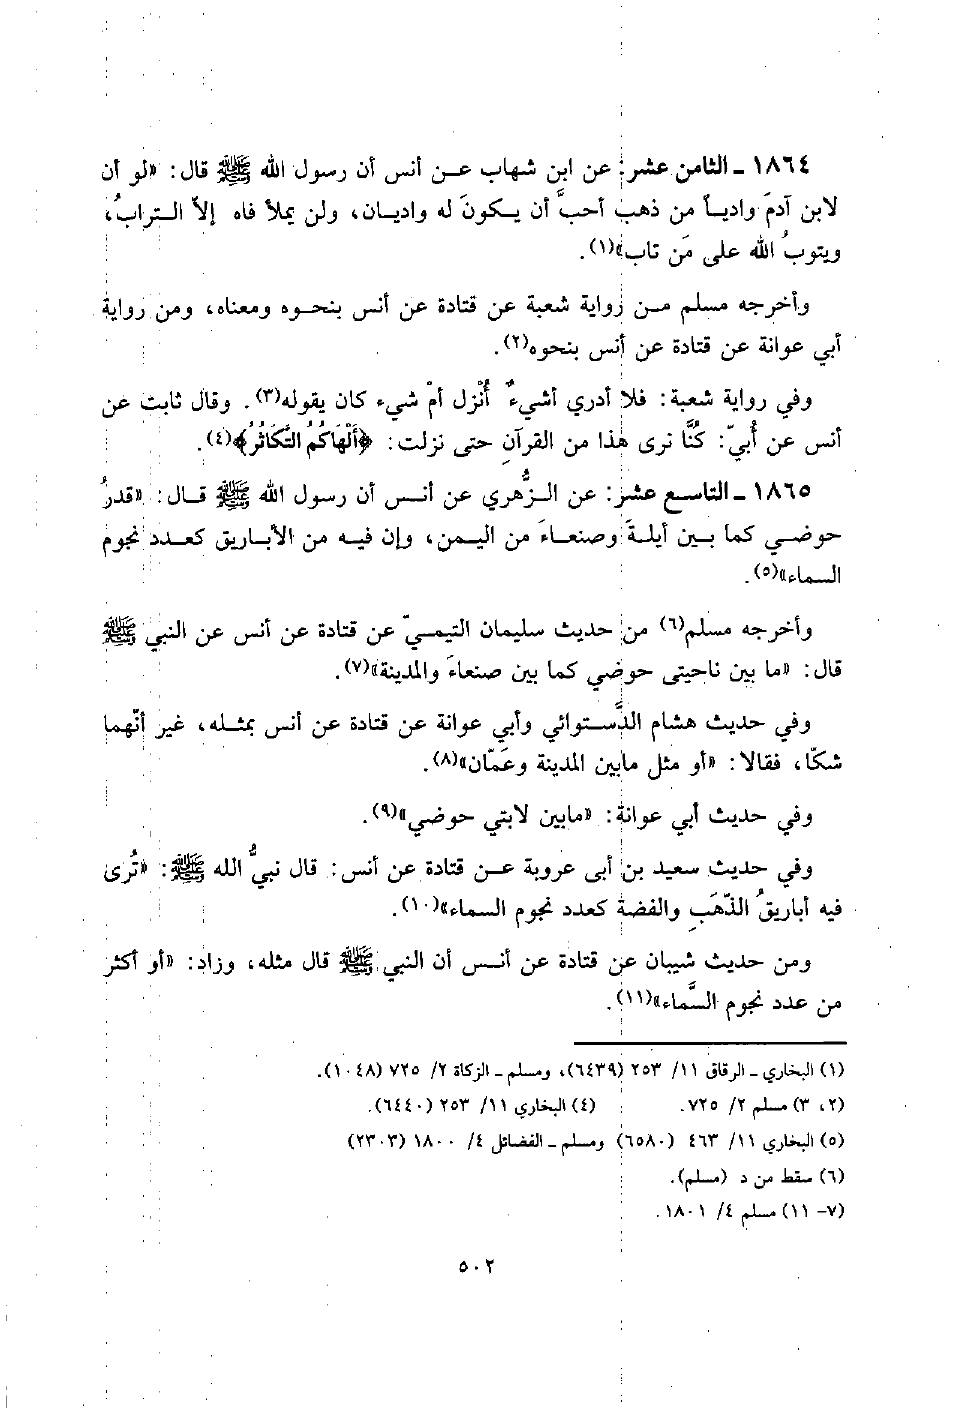 ١٨٦٤ ـ الثامن عشر: عن ابن شهاب عـن أنس أن رسول الله ﷺ قال: «لو أن
لابن آدمَ وادياً من ذهب أحبَّ أن يكونَ له واديان، ولن يملأ فاه إلاّ الترابُ،
ويتوبُ الله على مَن تاب»(١).
وأخرجه مسلم من رواية شعبة عن قتادة عن أنس بنحوه ومعناه، ومن رواية
أبي عوانة عن قتادة عن أنس بنحوه(٢).
وفي رواية شعبة: فلا أدري أشيءٌ أُنْزل أمْ شيء كان يقوله(٣). وقال ثابت عن
أنس عن أُبيّ: كُنَّا نرى هذا من القرآنِ حتى نزلت: ﴿أَلْهَاكُمُ التَّكَاثُرُ﴾(٤).
١٨٦٥ ـ التاسع عشر: عن الزُّهري عن أنس أن رسول الله ﷺ قال: «قدرُ
حوضي كما بين أيلةَ وصنعاءَ من اليمن، وإن فيه من الأباريق كعدد نجوم
السماء»(٥).
وأخرجه مسلم(٦) من حديث سليمان التيميّ عن قتادة عن أنس عن النبي ﷺ
قال: «ما بين ناحيتى حوضي كما بين صنعاءَ والمدينة»(٧).
وفي حديث هشام الدَّستوائي وأبي عوانة عن قتادة عن أنس بمثله، غير أنّهما
شكّا، فقالا: «أو مثل مابين المدينة وعَمّان»(٨).
وفي حديث أبي عوانة: «مابين لابتي حوضي»(٩).
وفي حديث سعيد بن أبى عروبة عـن قتادة عن أنس: قال نبيُّ الله ﷺ: «تُرىٰ
فيه أباريقُ الذّهَبِ والفضة كعدد نجوم السماء»(١٠).
ومن حديث شيبان عن قتادة عن أنس أن النبي ﷺ قال مثله، وزاد: «أو أكثر
من عدد نجوم السَّماء»(١١).
(١) البخاري ـ الرقاق ١١/ ٢٥٣ (٦٤٣٩)، ومسلم ـ الزكاة ٢/ ٧٢٥ (١٠٤٨).
(٢، ٣) مسلم ٢/ ٧٢٥. (٤) البخاري ١١/ ٢٥٣ (٦٤٤٠).
(٥) البخاري ١١/ ٤٦٣ (٦٥٨٠) ومسلم ـ الفضائل ٤/ ١٨٠٠ (٢٣٠٣)
(٦) سقط من د (مسلم).
(٧- ١١) مسلم ٤/ ١٨٠١.
٥٠٢